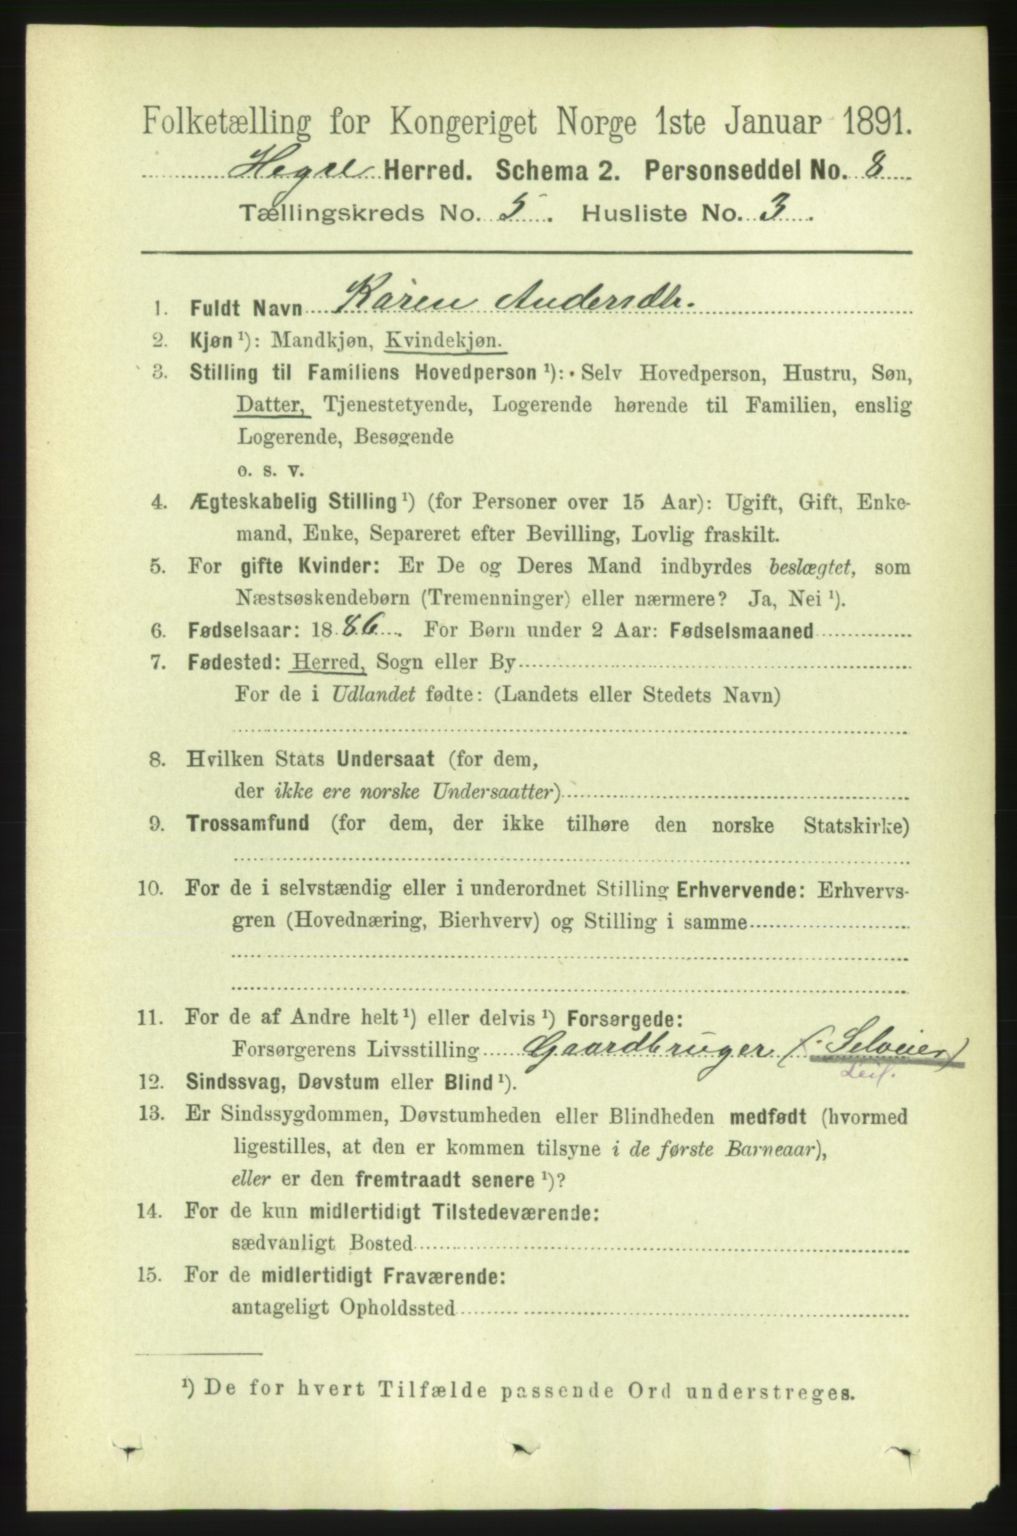 Folketælling for Kongeriget Norge 1ste Januar 1891.
Hegre Herred. Schema 2. Personseddel No. 8
Tællingskreds No. 5. Husliste No. 3.
1. Fuldt Navn Karen Andersdtr.
2. Kjøn ¹): Mandkjøn, Kvindekjøn.
3. Stilling til Familiens Hovedperson ¹): Selv Hovedperson, Hustru, Søn,
Datter, Tjenestetyende, Logerende hørende til Familien, enslig
Logerende, Besøgende
o. s. v.
4. Ægteskabelig Stilling ¹) (for Personer over 15 Aar): Ugift, Gift, Enke-
mand, Enke, Separeret efter Bevilling, Lovlig fraskilt.
5. For gifte Kvinder: Er De og Deres Mand indbyrdes beslægtet, som
Næstsøskendebørn (Tremenninger) eller nærmere? Ja, Nei ¹).
6. Fødselsaar: 1886. For Børn under 2 Aar: Fødselsmaaned
7. Fødested: Herred, Sogn eller By
For de i Udlandet fødte: (Landets eller Stedets Navn)
8. Hvilken Stats Undersaat (for dem,
der ikke ere norske Undersaatter)
9. Trossamfund (for dem, der ikke tilhøre den norske Statskirke)
10. For de i selvstændig eller i underordnet Stilling Erhvervende: Erhvervs-
gren (Hovednæring, Bierhverv) og Stilling i samme
11. For de af Andre helt ¹) eller delvis ¹) Forsørgede:
Forsørgerens Livsstilling Gaardbruger (Selveier)
Leil.
12. Sindssvag, Døvstum eller Blind ¹).
13. Er Sindssygdommen, Døvstumheden eller Blindheden medfødt (hvormed
ligestilles, at den er kommen tilsyne i de første Barneaar),
eller er den fremtraadt senere ¹)?
14. For de kun midlertidigt Tilstedeværende:
sædvanligt Bosted
15. For de midlertidigt Fraværende:
antageligt Opholdssted
¹) De for hvert Tilfælde passende Ord understreges.